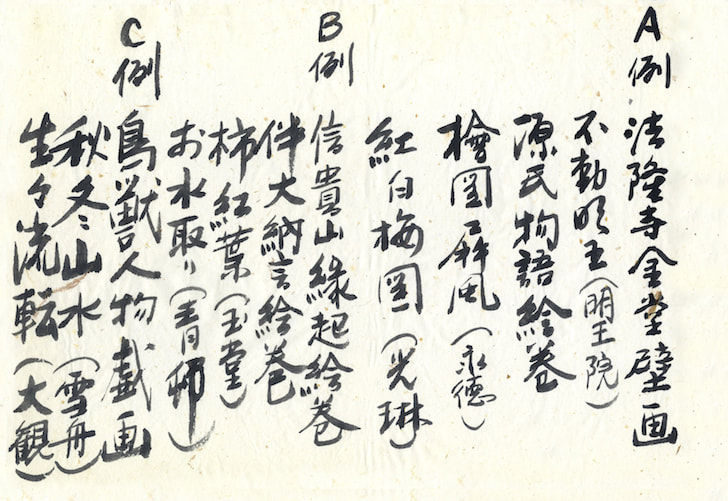 A例
法隆寺金堂壁画
不動明王(明王院)
源氏物語絵巻
檜図屏風(永徳)
紅白梅図(光琳)
B例
信貴山縁起絵巻
伴大納言絵巻
柿紅葉(玉堂)
お水取り(青邨)
C例
鳥獣人物戯画
秋冬山水(雪舟)
生々流転(大観)